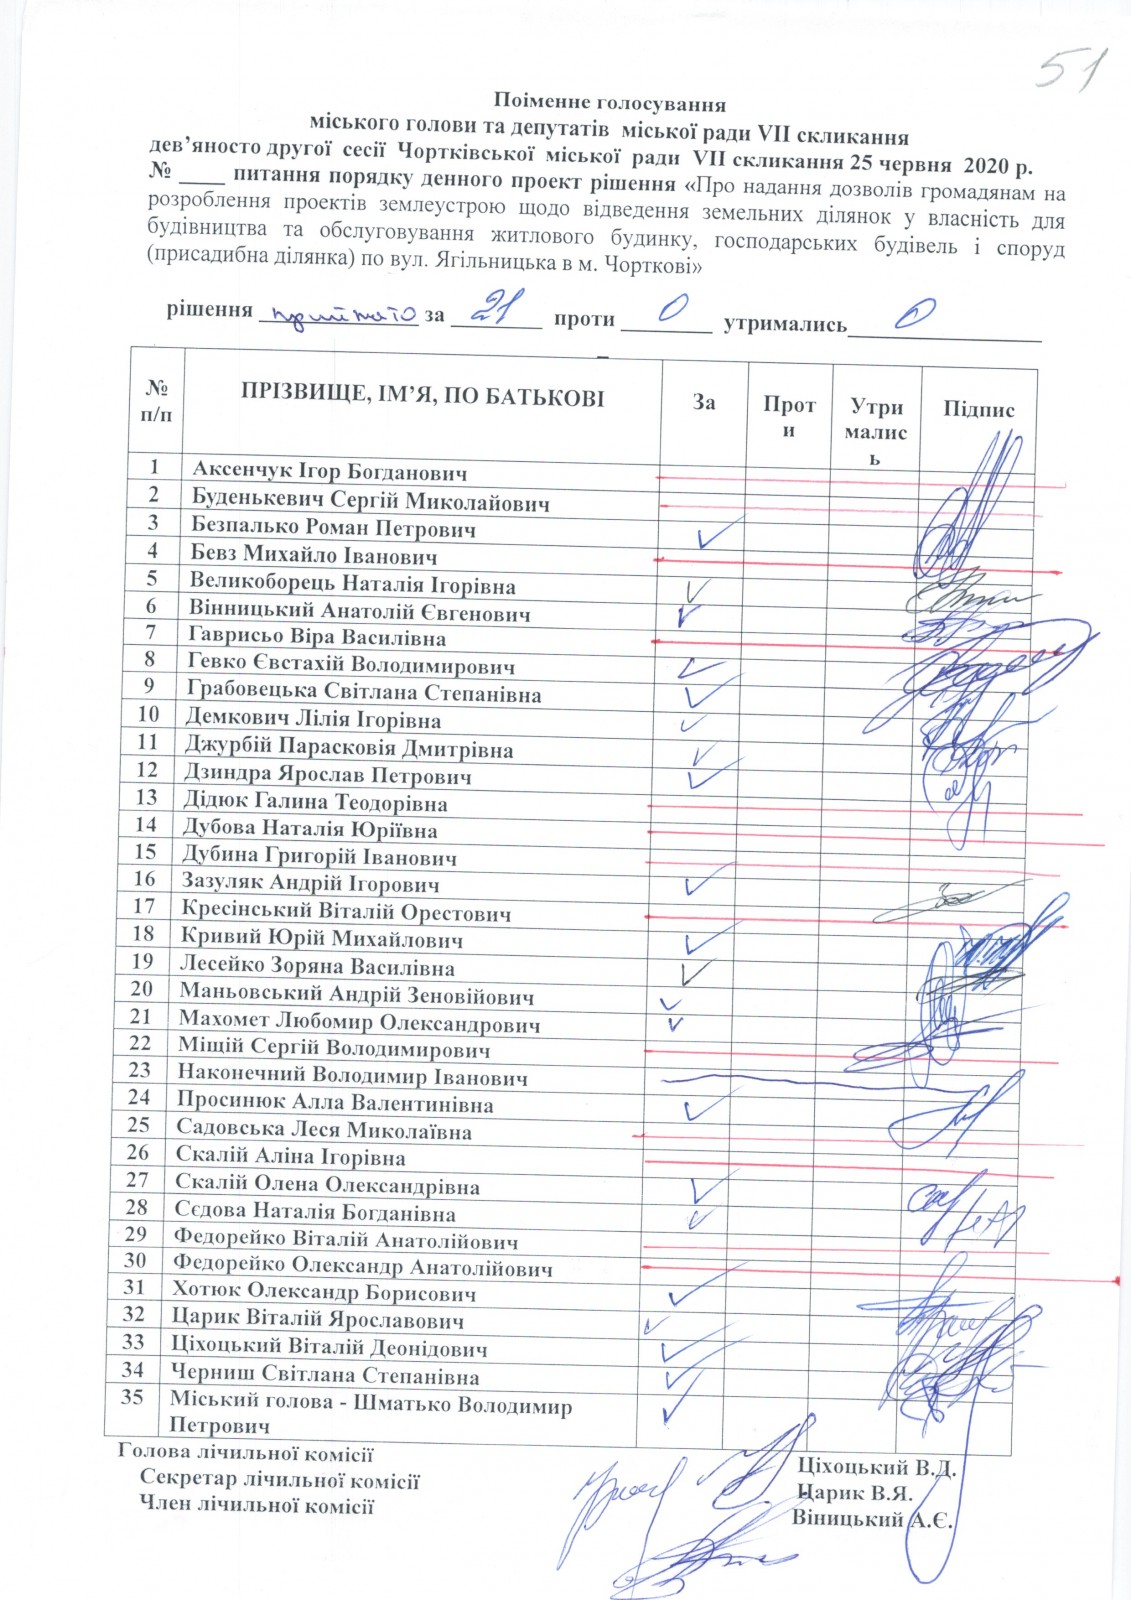 51
Поіменне голосування
міського голови та депутатів міської ради VII скликання
дев’яносто другої сесії Чортківської міської ради VII скликання 25 червня 2020 р.
№ ____ питання порядку денного проект рішення «Про надання дозволів громадянам на
розроблення проектів землеустрою щодо відведення земельних ділянок у власність для
будівництва та обслуговування житлового будинку, господарських будівель і споруд
(присадибна ділянка) по вул. Ягільницька в м. Чорткові»
рішення прийнято за 21 проти 0 утримались 0
№ п/п ПРІЗВИЩЕ, ІМ’Я, ПО БАТЬКОВІ За Проти Утримались Підпис
1 Аксенчук Ігор Богданович
2 Буденькевич Сергій Миколайович
3 Безпалько Роман Петрович
4 Бевз Михайло Іванович
5 Великоборець Наталія Ігорівна
6 Вінницький Анатолій Євгенович
7 Гаврисьо Віра Василівна
8 Гевко Євстахій Володимирович
9 Грабовецька Світлана Степанівна
10 Демкович Лілія Ігорівна
11 Джурбій Парасковія Дмитрівна
12 Дзиндра Ярослав Петрович
13 Дідюк Галина Теодорівна
14 Дубова Наталія Юріївна
15 Дубина Григорій Іванович
16 Зазуляк Андрій Ігорович
17 Кресінський Віталій Орестович
18 Кривий Юрій Михайлович
19 Лесейко Зоряна Василівна
20 Маньовський Андрій Зеновійович
21 Махомет Любомир Олександрович
22 Міщій Сергій Володимирович
23 Наконечний Володимир Іванович
24 Просинюк Алла Валентинівна
25 Садовська Леся Миколаївна
26 Скалій Аліна Ігорівна
27 Скалій Олена Олександрівна
28 Сєдова Наталія Богданівна
29 Федорейко Віталій Анатолійович
30 Федорейко Олександр Анатолійович
31 Хотюк Олександр Борисович
32 Царик Віталій Ярославович
33 Ціхоцький Віталій Деонідович
34 Черниш Світлана Степанівна
35 Міський голова - Шматько Володимир
Петрович
Голова лічильної комісії Ціхоцький В.Д.
Секретар лічильної комісії Царик В.Я.
Член лічильної комісії Віницький А.Є.